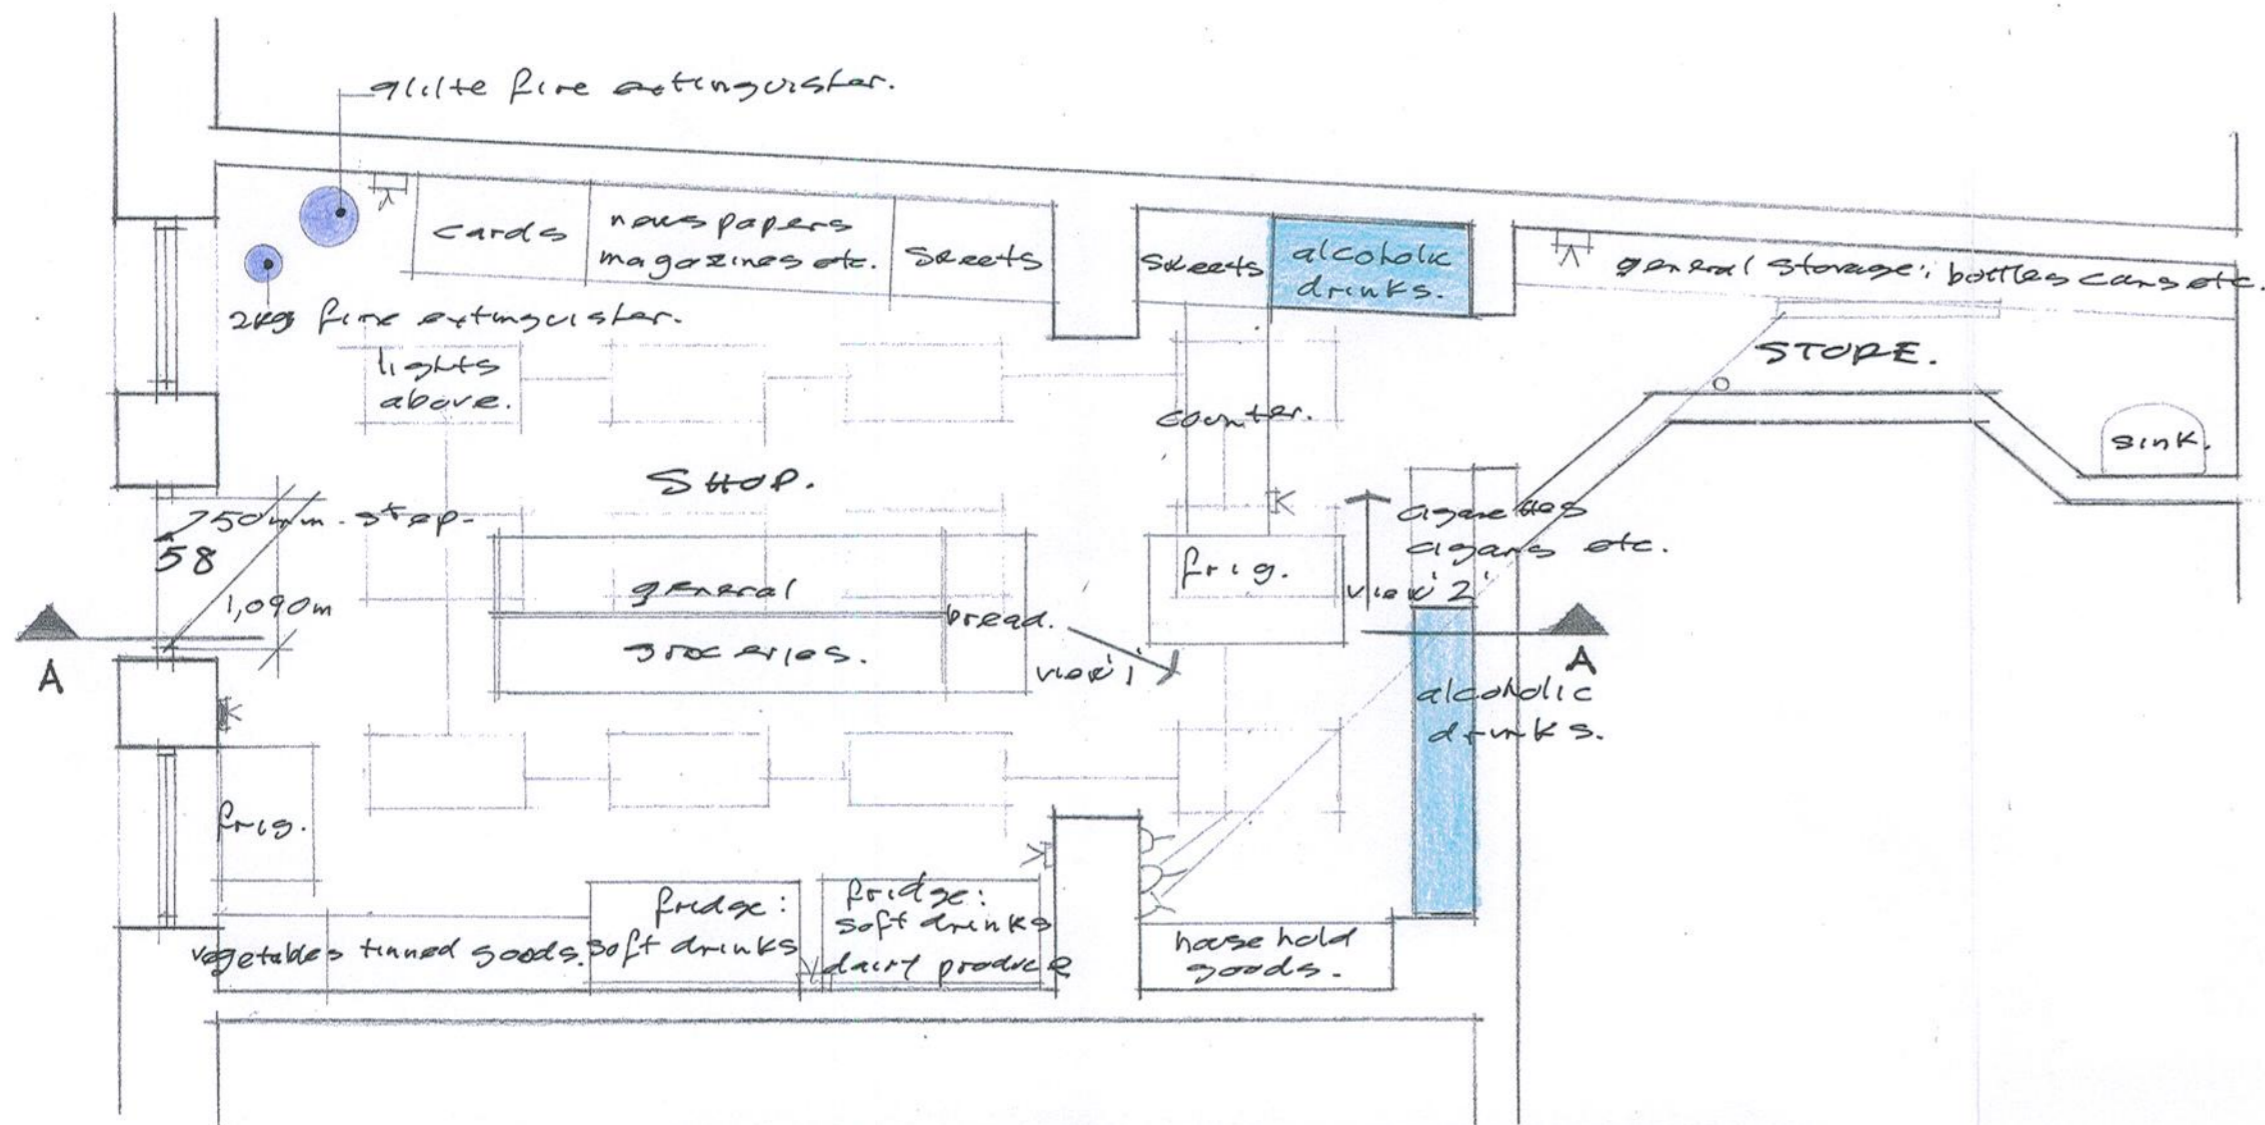 9litre fire extinguisher.
cards
newspapers
magazines etc.
sweets
sweets
alcoholic
drinks.
general storage; bottles cans etc.
2kg fire extinguisher.
lights
above.
STORE.
counter.
sink.
SHOP.
750mm. step-
58
1,090m
cigarettes
cigars etc.
frig.
view '2'
general
groceries.
bread.
view '1'
A
A
alcoholic
drinks.
frig.
fridge:
soft drinks
fridge:
soft drinks
dairy produce
vegetables
tinned goods.
household
goods.